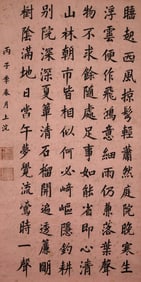 睡起西風掠鬢輕蕭然庭院晚寒生
浮雲便作飛鴻意細雨仍兼落葉聲
物不求餘隨處足事如能省即心清
山林朝市皆相似何必崎嶇隱釣耕
別院深深夏簟清石榴開遍透簾明
樹陰滿地日當午夢覺流鶯時一聲
丙子季春月上浣